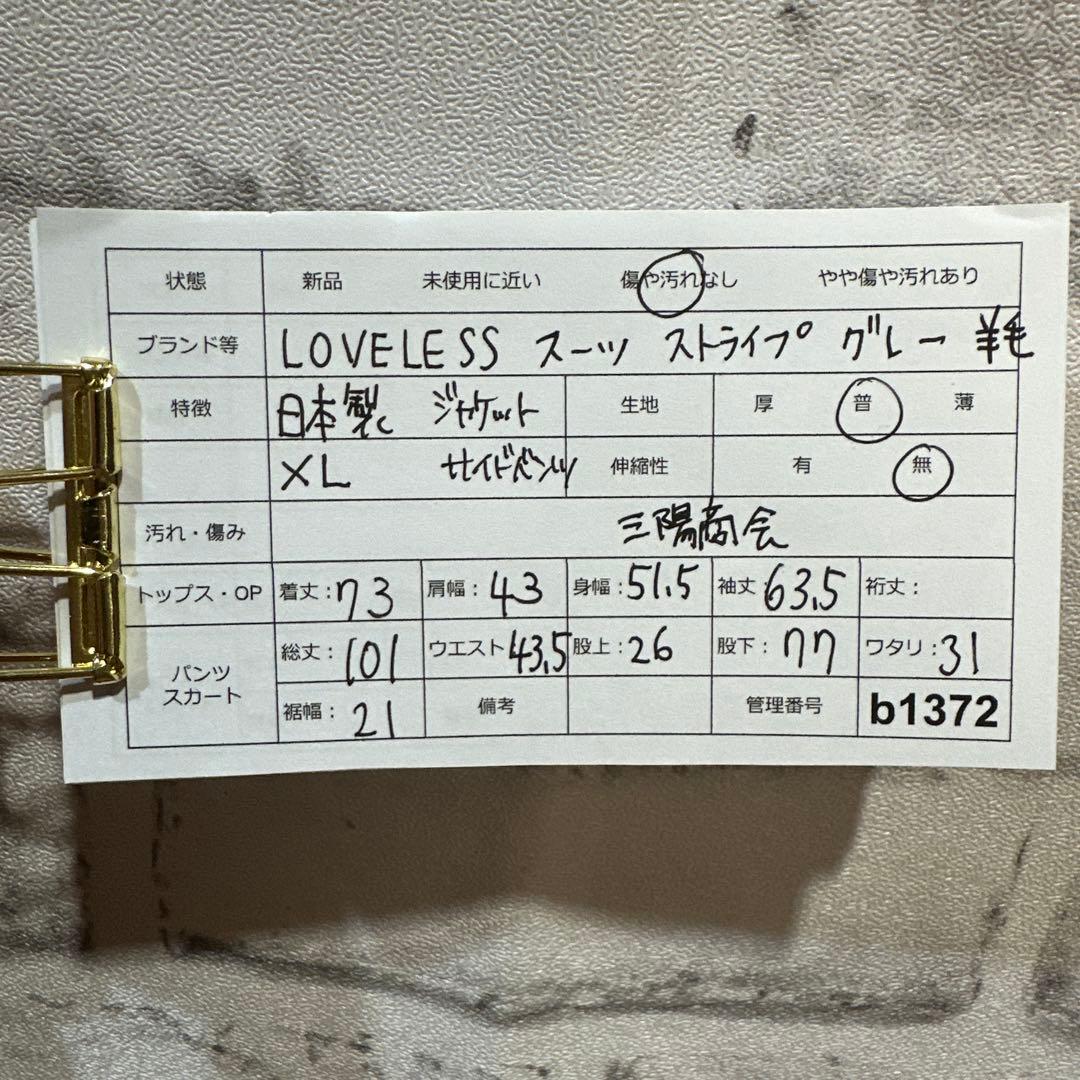 状態 新品 未使用に近い 傷や汚れなし やや傷や汚れあり
ブランド等 LOVELESS スーツ ストライプ グレー 羊毛
特徴 日本製 ジャケット 生地 厚 普 薄
XL サイドベンツ 伸縮性 有 無
汚れ・傷み 三陽商会
トップス・OP 着丈:73 肩幅:43 身幅:51.5 袖丈:63.5 裄丈:
パンツ スカート 総丈:101 ウエスト43.5 股上:26 股下:77 ワタリ:31
裾幅:21 備考 管理番号 b1372